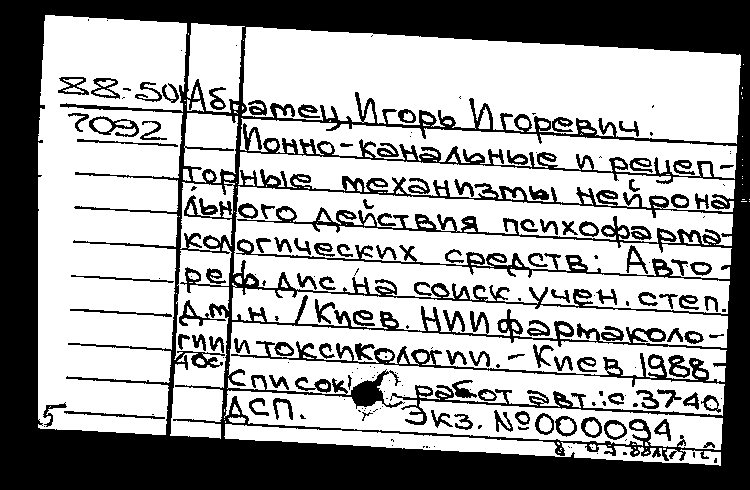 88-50 Абрамец, Игорь Игоревич.
7092
Ионно-канальные и рецеп-
торные механизмы нейрона
льного действия психофарма-
кологических средств: Авто-
реф. дис. на соиск. учен. степ.
д.м.н. / Киев. НИИ фармаколо-
гии и токсикологии. - Киев, 1988.-
40с.
Список работ авт.: с. 37-40.
ДСП. Экз. №000094.
5